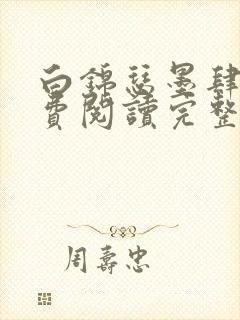 白錦瑟墨肆
費閱讀完整
周壽忠